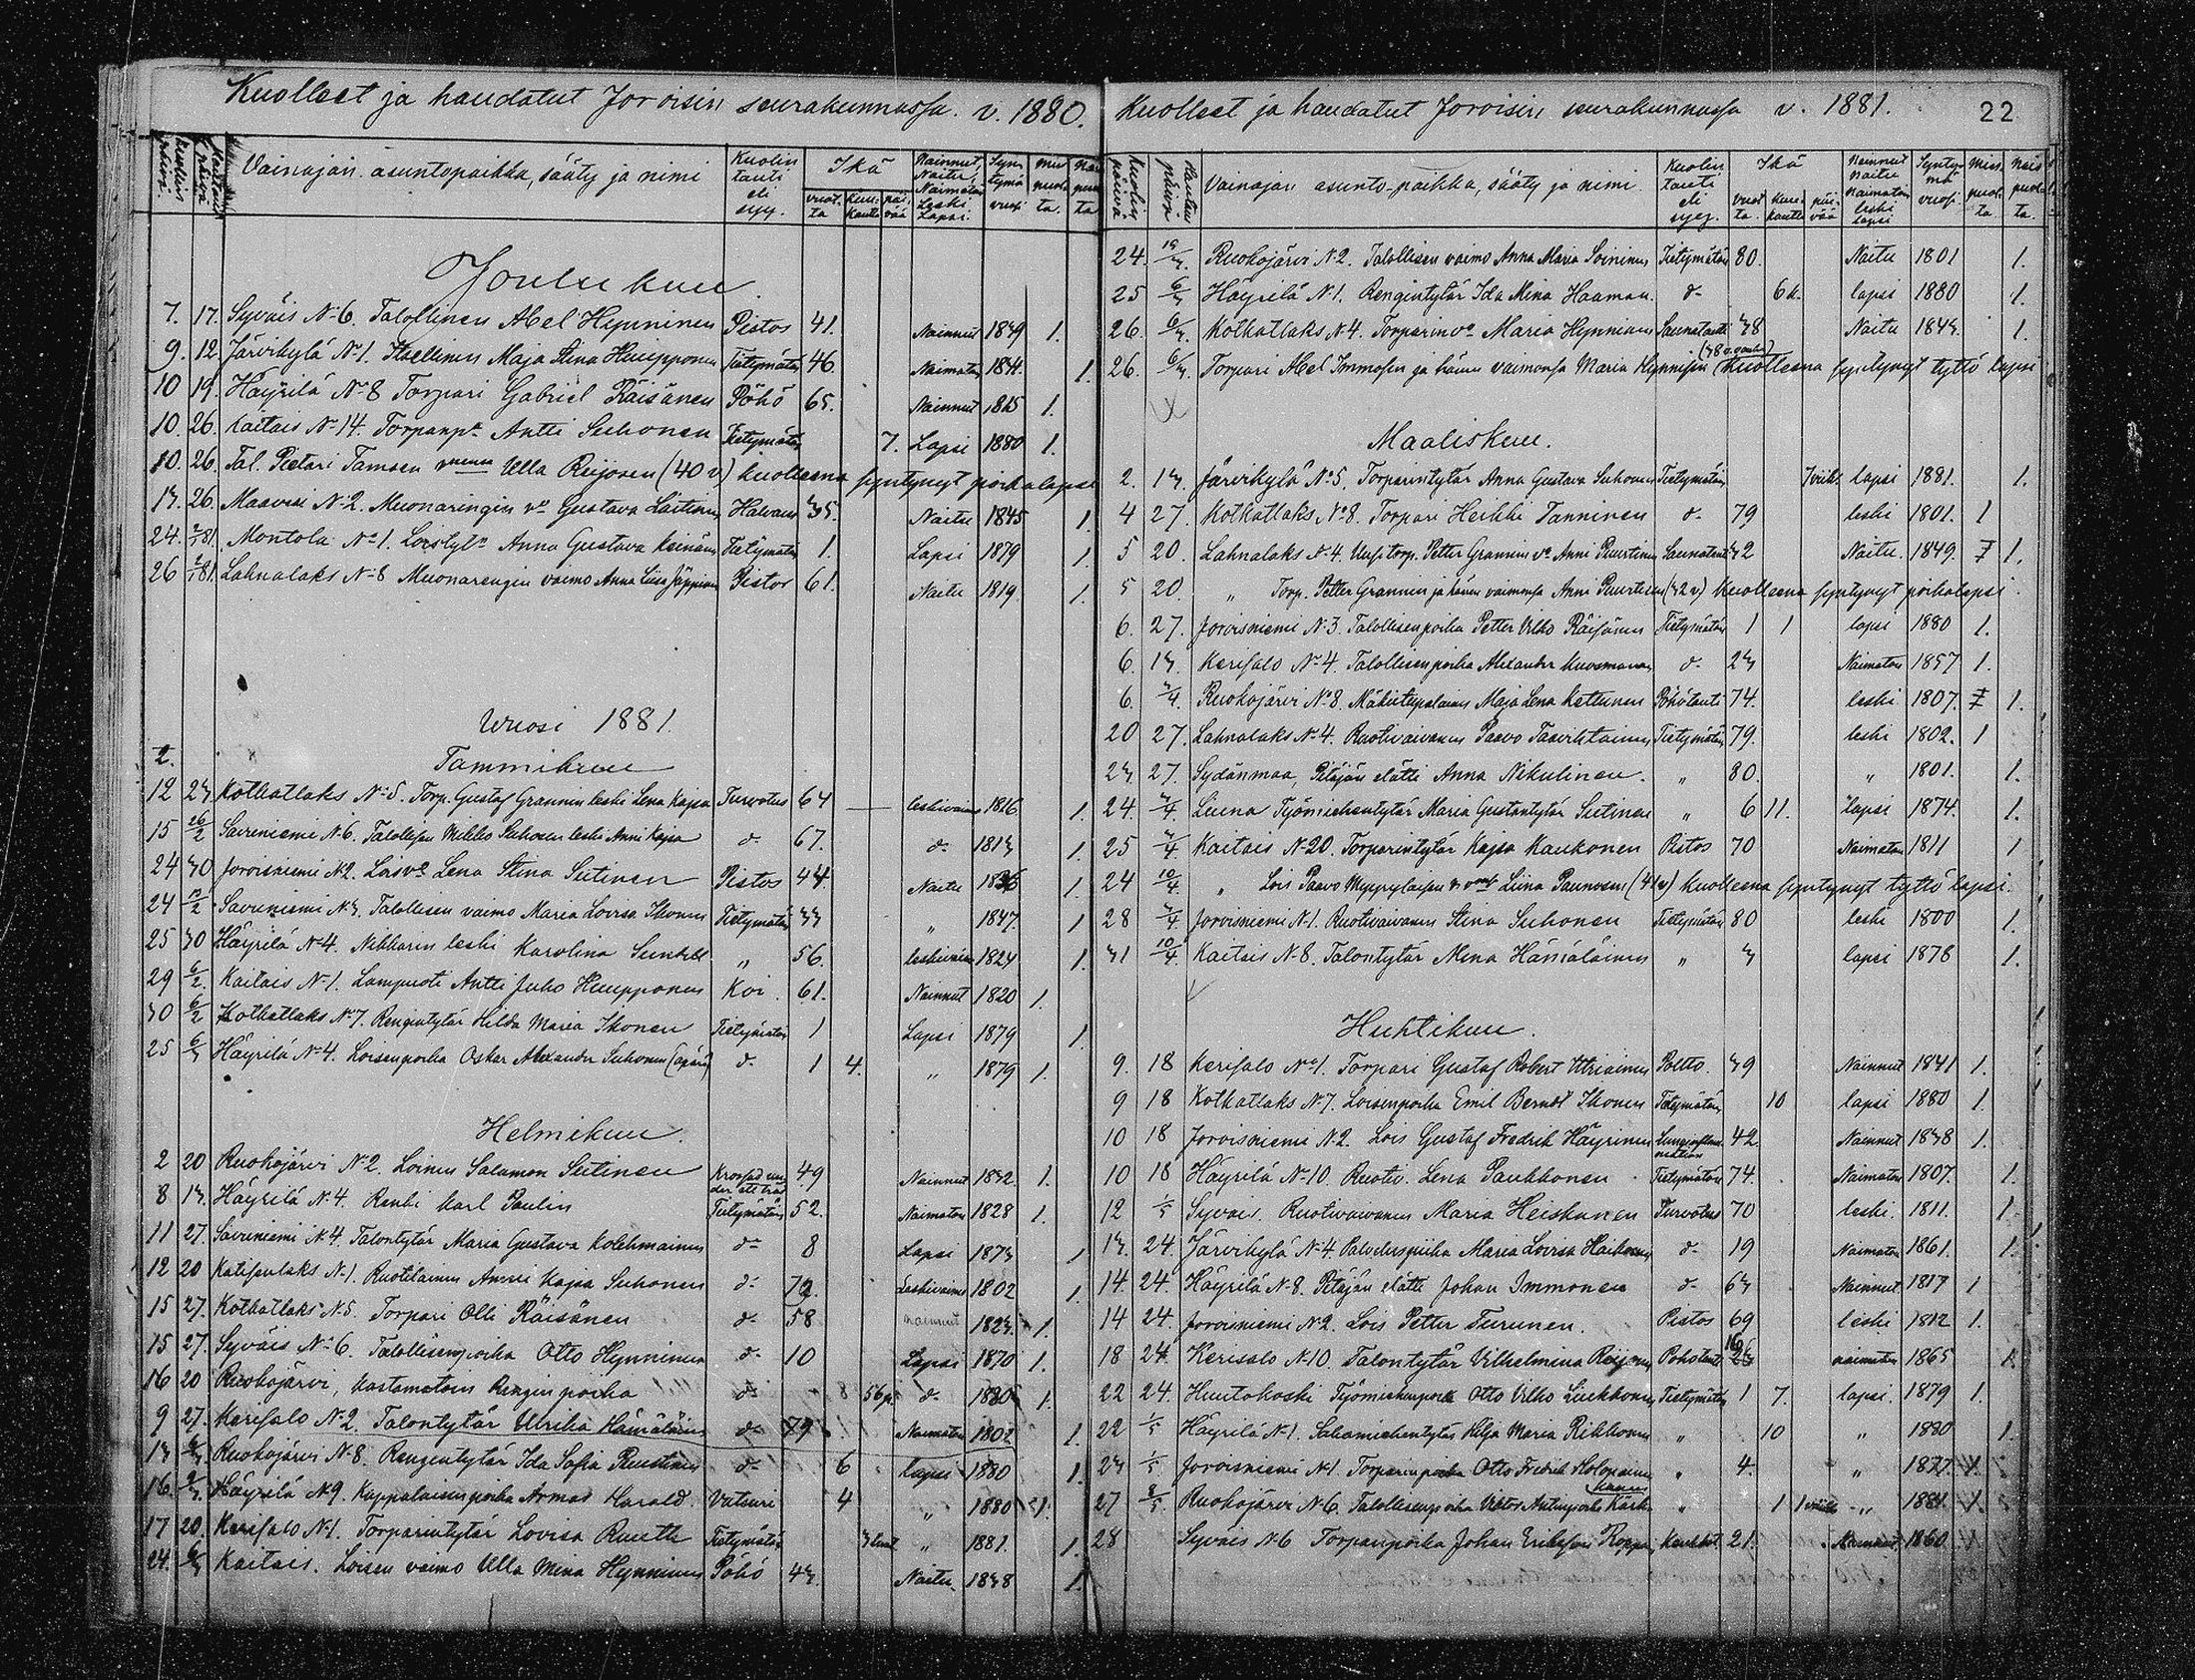 Kuolleet ja haudatut Joroisin seurakunnassa. v. 1880.
Vainajan asuntopaikka, sääty ja nimi
Kuolin tauti eli syy.
Ikä
vuot. ta kuu- kautta päi- vää
Nainnut, Naitu, Naimaton Leski Lapsi.
Syn- tymä vuosi
Joulukuu.
7. 17. Syväis No 6. Talollinen Abel Hynninen Pistos 41. Nainnut 1839 1.
9. 12. Järvikylä No 1. Itsellinen Maja Stina Huupponen Tietymätön 46. Naimaton 1834. 1.
10 19. Häyrilä No 8 Torpari Gabriel Räisänen Pöhö 65. Nainnut 1815 1.
10. 26. Kaitais No 14. Torpanpa Antti Suhonen Tietymätön 7. Lapsi 1880 1.
10. 26. Tal. Pietari Tamsen Ulla Reijosen (40 v) kuolleena syntynyt poikalapsi
13. 26. Maavesi No 2. Muonaringin vo Gustava Laitinen Halvaus 35. Naitu 1845 1.
24. 2/1 81. Montola No 1. Loistytr Anna Gustava Keinänen Tietymätön 1. Lapsi 1879 1.
26 2/1 81. Lahnalaks No 8 Muonarengin vaimo Anna Liisa Jäppinen Pistos 61. Naitu 1819. 1.
Wuosi 1881.
2.
Tammikuu
12 23. Kotkatlaks No 5. Torp. Gustaf Grannin leski Lena Kajsa Turvotus 64 leskivaimo 1816 1.
15 26/2 Savuniemi No 6. Talollisen Mikko Suhosen leski Anni Kajsa d- 67. d- 1813 1.
24 30 Joroisniemi No 2. Loisvo Lena Stina Sutinen Pistos 44. Naitu 1836 1.
24 13/2 Savuniemi No 3. Talollisen vaimo Maria Lovisa Ikonen Tietymätön 33 „ 1847. 1
25 30 Häyrilä No 4. Nikkarin leski Karolina Sundell „ 56. leskivaimo 1824 1.
29 6/2. Kaitais No 1. Lampuoti Antti Juho Huupponen Koi. 61. Nainnut 1820 1.
30 6/2 Kotkatlaks No 7. Rengintytär Hilda Maria Ikonen Tietymätön 1 Lapsi 1879 1.
25 6/3 Häyrilä No 4. Loisenpoika Oskar Alexander Suhonen (äpärä) d- 1 4. „ 1879 1.
Helmikuu.
2 20 Ruokojärvi No 2. Loinen Salomon Sutinen Krossad un- der ett träd 49 Nainnut 1832. 1.
8 13. Häyrilä No 4. Renki Karl Paulin Tietymätön 52. Naimaton 1828 1.
11 27. Savuniemi No 4. Talontytär Maria Gustava Kolehmainen d- 8 Lapsi 1873 1
12 20 Katisenlaks No 1. Ruotilainen Anni Kajsa Suhonen d- 79. Leskivaimo 1802 1.
15 27. Kotkatlaks No 5. Torpari Olli Räisänen d- 58 nainnut 1823. 1.
15 27. Syväis No 6. Talollisenpoika Otto Hynninen d- 10 Lapsi 1870 1.
16 20 Ruokojärvi, kastamatoin Rengin poika d- d- 1880 1.
9 27. Kerisalo No 2. Talontytär Ulrika Hämäläinen d- 79 Naimaton 1802 1.
13 6/3 Ruokojärvi No 8. Rengintytär Ida Sofia Puustinen d- 6 lapsi 1880 1.
16. Häyrilä No 9. Kappalaisen poika Armas Harald. Vatsuri 4 „ 1880 1.
17 20. Kerisalo No 1. Torparintytär Lovisa Ruuth Tietymätön „ 1881. 1.
24. 6/3 Kaitais. Loisen vaimo Ulla Mina Hynninen Pöhö 43. Naitu 1838 1.
Kuolleet ja haudatut Joroisin seurakunnassa v. 1881. 22
Kuolin päivä Hautaus päivä
Vainajan asunto-paikka, sääty ja nimi.
Kuolin tauti eli syy.
Ikä
vuot- ta. kuu- kautta päi- vää
Nainnut naitu naimaton leski lapsi
Synty- mä vuosi.
Mies puol- ta
Nais puol- ta.
24. 19/3. Ruokojärvi No 2. Talollisen vaimo Anna Maria Soininen Tietymätön 80. Naitu 1801 1.
25 6/3 Häyrilä No 1. Rengintytär Ida Mina Haaman. d- 6 k. lapsi 1880 1.
26. 6/3. Kotkatlaks No 4. Torparin vo Maria Hynninen Saunatauti 38 Naitu 1843. 1.
26. 6/3. Torpari Abel Immosen ja hänen vaimonsa Maria Hynnisen (38 v. vanha) kuolleena syntynyt tyttö lapsi
Maaliskuu.
2. 13. Järvikylä No 5. Torparintytär Anna Gustava Suhonen Tietymätön lapsi 1881. 1.
4 27. Kotkatlaks No 8. Torpari Heikki Tanninen d- 79 leski 1801. 1
5 20. Lahnalaks No 4. Uusitorp. Petter Grannin vo Anni Puurtinen Saunatauti 32 Naitu. 1849. 1.
5 20. „ Torp. Petter Grannin ja hänen vaimonsa Anni Puurtisen (32 v) kuolleena syntynyt poikalapsi.
6. 27. Joroisniemi No 3. Talollisenpoika Petter Vilho Räisänen Tietymätön 1 1 lapsi 1880 1.
6. 13. Kerisalo No 4. Talollisenpoika Alexander Kuosmanen d- 23 Naimaton 1857 1.
6. 3/4. Ruokojärvi No 8. Mäkitupalainen Maja Lena Kettunen Pöhötauti 74. leski 1807. 1.
20 27. Lahnalaks No 4. Ruotivaivanen Paavo Taavitsainen Tietymätön 79. leski 1802. 1
23. 27. Sydänmaa, Pitäjän elätti Anna Nikulinen. „ 80. „ 1801. 1.
24. 3/4. Liuna Työmiehentytär Maria Gustavntytär Sutinen „ 6 11. lapsi 1874. 1.
25 3/4. Kaitais No 20. Torparintytär Kajsa Kaukonen Pistos 70 Naimaton 1811 1
24 10/4. „ Lois Paavo Myyryläisen Liina Paunosen (41 v) kuolleena syntynyt tyttö lapsi.
28 3/4 Joroisniemi No 1. Ruotivaivanen Stina Suhonen Tietymätön 80 leski 1800 1.
31 10/4. Kaitais No 8. Talontytär Mina Hämäläinen „ 3 lapsi 1878 1.
Huhtikuu.
9. 18 Kerisalo No 1. Torpari Gustaf Robert Utriainen Poltto. 39 Nainnut 1841 1.
9 18 Kotkatlaks No 7. Loisenpoika Emil Berndt Ikonen Tietymätön 10 lapsi 1880 1.
10 18 Joroisniemi No 2. Lois Gustaf Fredrik Häyrinen Lunginflam- mation 42. Nainnut 1838 1.
10 18 Häyrilä No 10. Ruotiv. Lena Paukkonen Tietymätön 74. Naimaton 1807. 1.
12 1/5 Syväis. Ruotivaivanen Maria Heiskanen Turvotus 70 leski. 1811. 1
13. 24. Järvikylä No 4. Palveluspiika Maria Lovisa Haikonen d- 19 Naimaton 1861. 1.
14. 24. Häyrilä No 8. Pitäjän elätti Johan Immonen d- 63 Nainnut 1817 1
14 24. Joroisniemi No 2. Lois Petter Turunen. Pistos 69 leski 1812 1.
18 24 Kerisalo No 10. Talontytär Vilhelmina Reijonen Pöhötauti 16 naimaton 1865 1.
22 24. Huutokoski Työmiehenpoika Otto Vilho Liukkonen Tietymätön 1 7. lapsi. 1879 1.
22 1/5 Häyrilä No 1. Sahamiehentytär Hilja Maria Rikkonen „ 10 „ 1880 1.
23 1/5 Joroisniemi No 1. Torparinpoika Otto Fredrik Holopainen „ 4. „ 1877. 1.
27 8/5. Ruokojärvi No 6. Talollisenpoika Viktor Antinpoika Kärk- kainen „ 1 „ 1881. 1.
28 Syväis No 6 Torparipoika Johan Erikson Roppa 21. 1860.